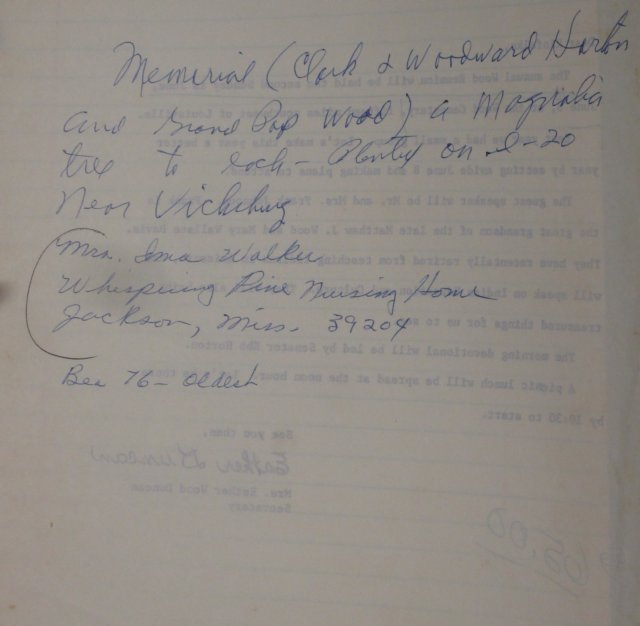 Memorial (Clark & Woodward Horton
and Grand Pap Wood) a Magnolia
tree to each - Planted on I-20
Near Vicksburg
Mrs. Ima Walker
Whispering Pine Nursing Home
Jackson, Miss. 39204
Bea 76 - oldest
The annual Wood Reunion will be held the second Sunday in June,
of Louisville.
let's make this year a better
year by setting aside June 8 and making plans to
The guest speaker will be Mr. and Mrs.
the great grandson of the late Matthew J. Wood and Mary Wallace Davis.
They have recentally retired from teaching
will speak on Indian
treasured things for us to see.
The morning devotional will be led by Senator Ebb Horton.
A picnic lunch will be spread at the noon hour.
by 10:30 to start.
See you then,
Esther Duncan
Mrs. Esther Wood Duncan
Secretary